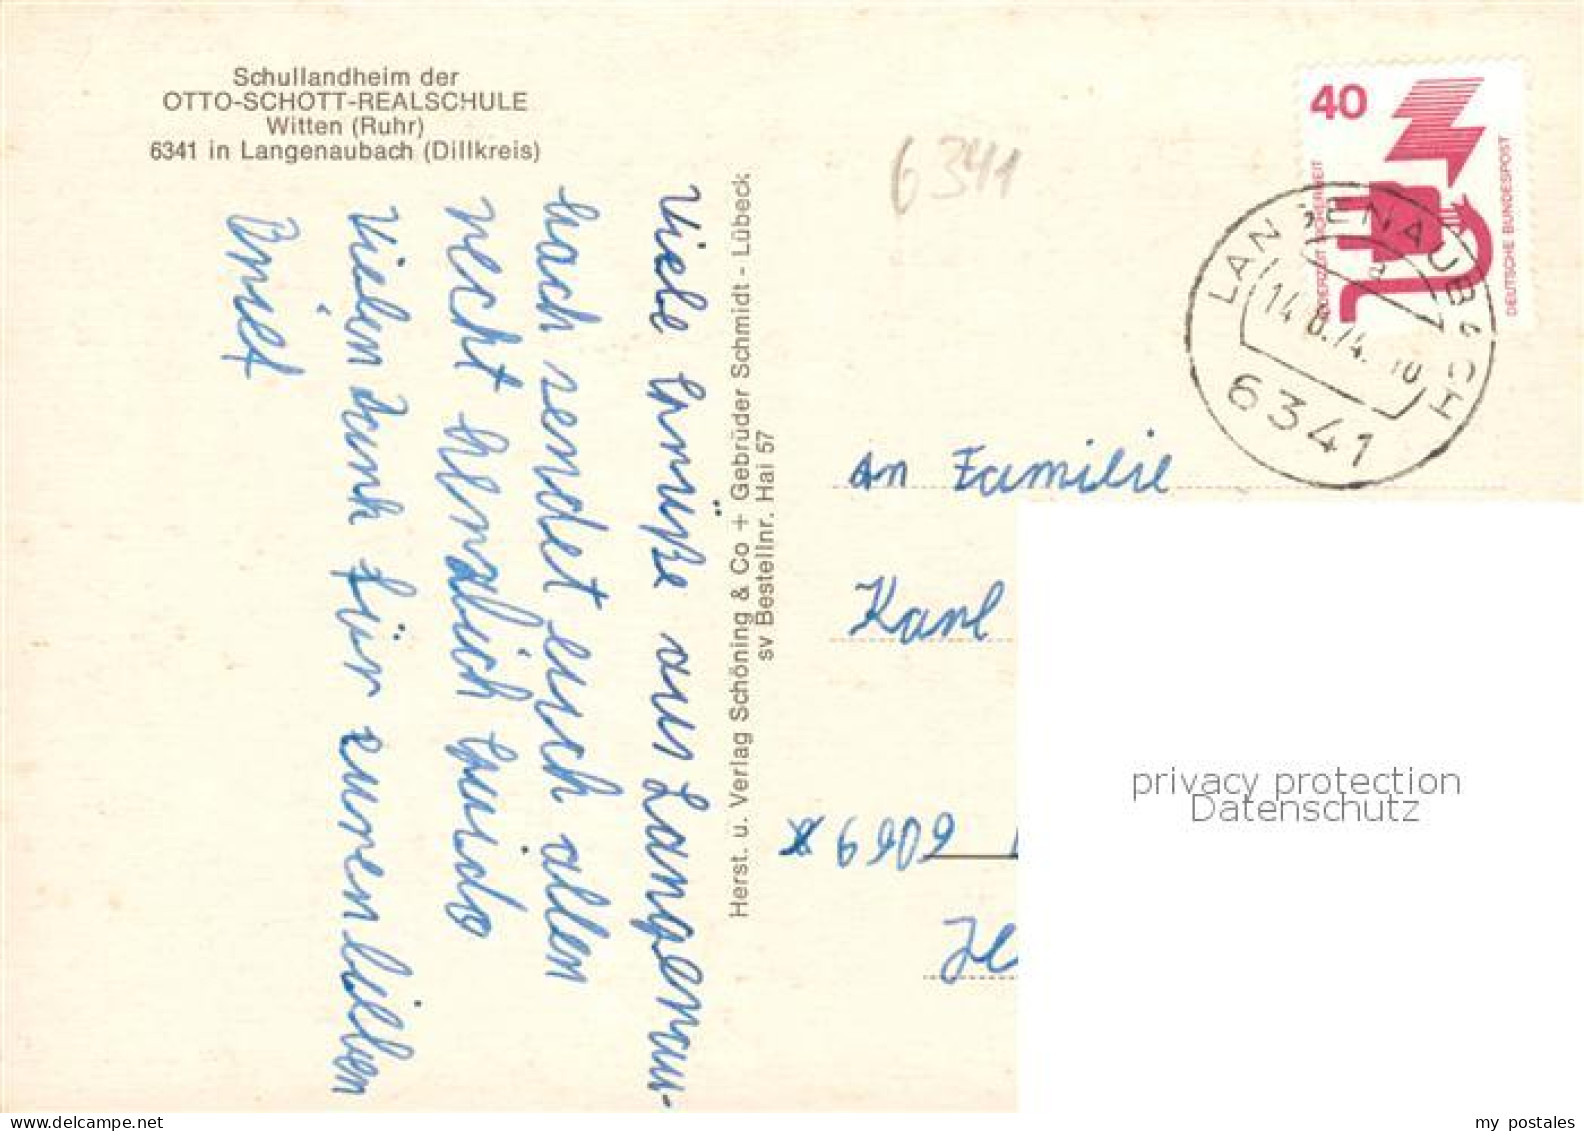 Schullandheim der
OTTO-SCHOTT-REALSCHULE
Witten (Ruhr)
6341 in Langenaubach (Dillkreis)
Viele Grüße aus Langenau-
bach sendet euch allen
recht herzlich Guido
Vielen Dank für euren lieben
Brief
Herst. u. Verlag Schöning & Co + Gebrüder Schmidt - Lübeck
sv Bestellnr. Hai 57
6341
40
JEDERZEIT SICHERHEIT
DEUTSCHE BUNDESPOST
LANGENAUBACH
a
14 8.74. 10
6341
An Familie
Karl
6909
privacy protection
Datenschutz
my postales
www.delcampe.net